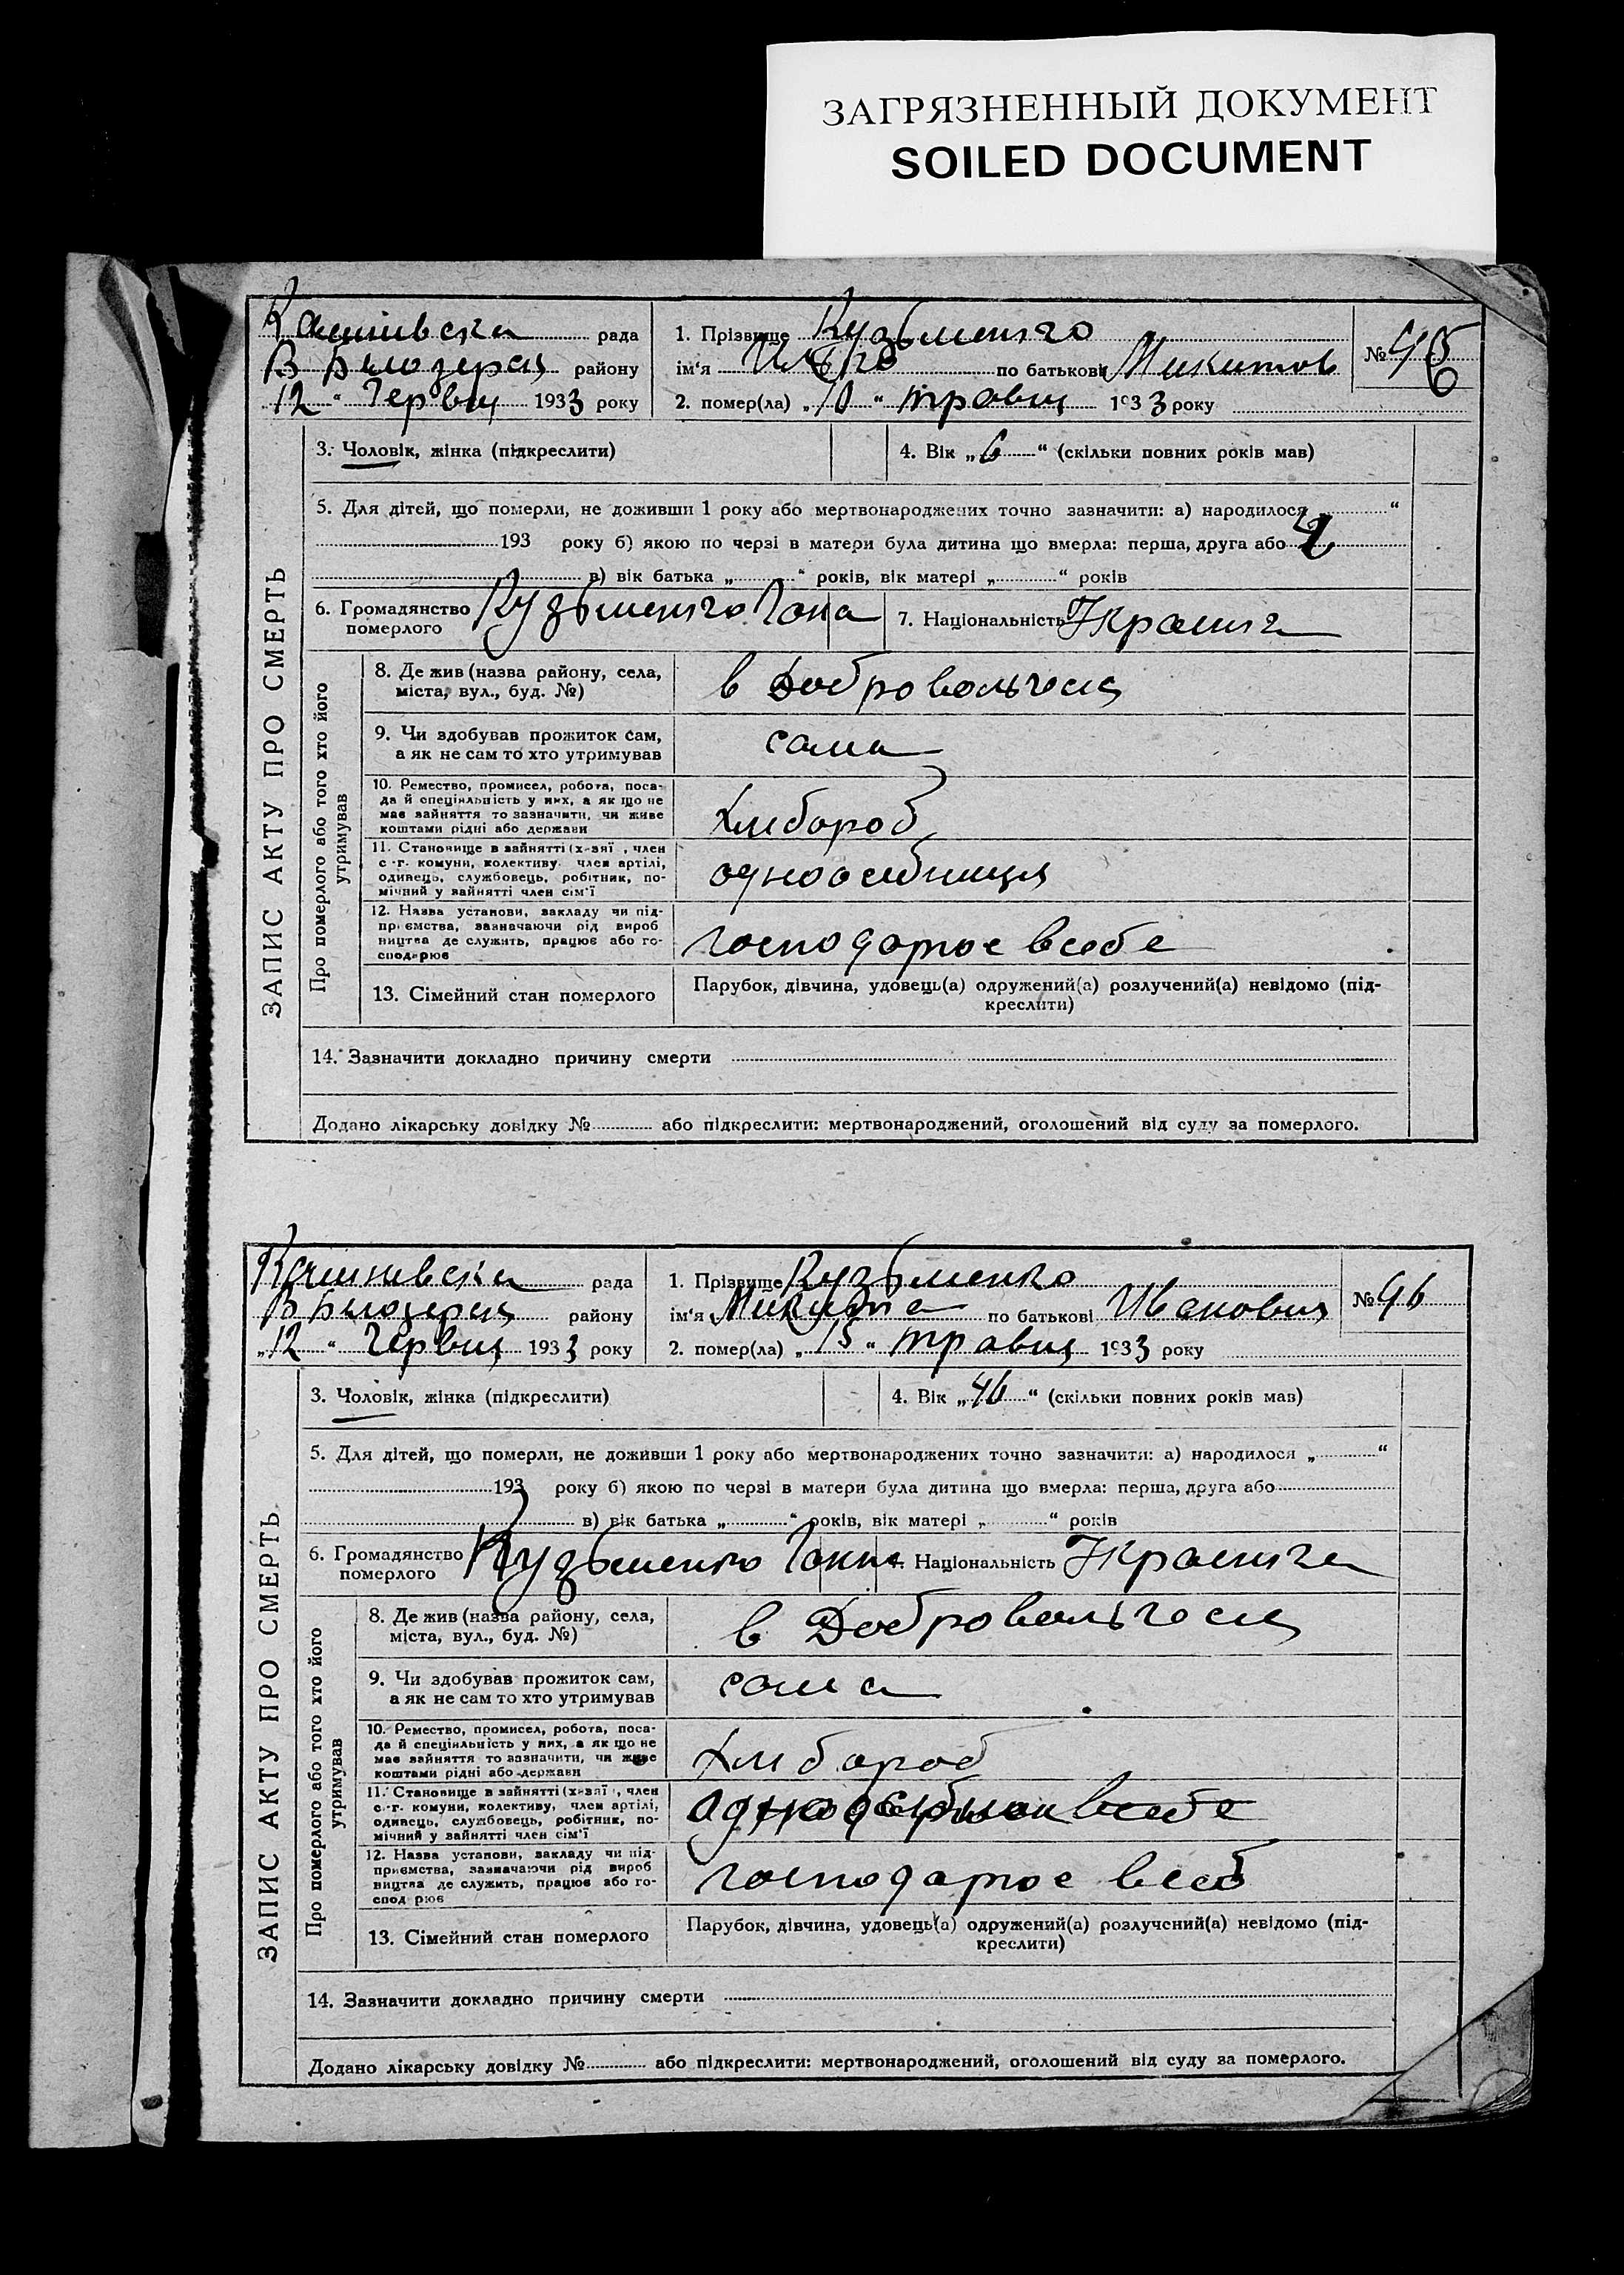 ЗАГРЯЗНЕННЫЙ ДОКУМЕНТ
SOILED DOCUMENT
рада
1. Прізвище Кузьменко
№ 45
району
ім'я по батькові Микитов
12 " Червня 1933 року
2. помер(ла) „ 10 " травня 1933 року
3. Чоловік, жінка (підкреслити)
4. Вік „ 6 " (скільки повних років мав)
5. Для дітей, що померли, не доживши 1 року або мертвонароджених точно зазначити: а) народилося "
193 року б) якою по черзі в матери була дитина що вмерла: перша, друга або
в) вік батька „ " років, вік матері „ " років
6. Громадянство померлого Кузьменко Гана
7. Національність Украинка
ЗАПИС АКТУ ПРО СМЕРТЬ
Про померлого або того хто його утримував
8. Де жив (назва району, села,
міста, вул., буд. №)
в Добровольческ
9. Чи здобував прожиток сам,
а як не сам то хто утримував
сама
10. Ремество, промисел, робота, поса-
да й специіяльність у них, а як що не
має зайняття то зазначити, чи живе
коштами рідні або держави
Хлибороб
11. Становище в зайнятті (х-зяї , член
с-г. комуни, колективу, член артілі,
одинець, службовець, робітник, по-
мічний у зайнятті член сім'ї
одноосибниця
12. Назва установи, закладу чи під-
приємства, зазначаючи рід вироб
ництва де служить, працює або го-
сподарює
господарює в себе
13. Сімейний стан померлого
Парубок, дівчина, удовець(а) одружений(а) розлучений(а) невідомо (під-
креслити)
14. Зазначити докладно причину смерти
Додано лікарську довідку № або підкреслити: мертвонароджений, оголошений від суду за померлого.
рада
1. Прізвище Кузьменко
№ 46
району
ім'я Микита по батькові Иванович
„ 12 " Червня 1933 року
2. помер(ла) „ 15 " травня 1933 року
3. Чоловік, жінка (підкреслити)
4. Вік „ 46 " (скільки повних років мав)
5. Для дітей, що померли, не доживши 1 року або мертвонароджених точно зазначити: а) народилося „ "
193 року б) якою по черзі в матери була дитина що вмерла: перша, друга або
в) вік батька „ " років, вік матері „ " років
6. Громадянство померлого Кузьменко Ганна
Національність Украинка
ЗАПИС АКТУ ПРО СМЕРТЬ
Про померлого або того хто його утримував
8. Де жив (назва району, села,
міста, вул., буд. №)
в Добровольческ
9. Чи здобував прожиток сам,
а як не сам то хто утримував
сама
10. Ремество, промисел, робота, поса-
да й специіяльність у них, а як що не
має зайняття то зазначити, чи живе
коштами рідні або держави
Хлибороб
11. Становище в зайнятті (х-зяї , член
с-г. комуни, колективу, член артілі,
одинець, службовець, робітник, по-
мічний у зайнятті член сім'ї
12. Назва установи, закладу чи під-
приємства, зазначаючи рід вироб
ництва де служить, працює або го-
сподарює
господарює в себ
13. Сімейний стан померлого
Парубок, дівчина, удовець(а) одружений(а) розлучений(а) невідомо (під-
креслити)
14. Зазначити докладно причину смерти
Додано лікарську довідку № або підкреслити: мертвонароджений, оголошений від суду за померлого.